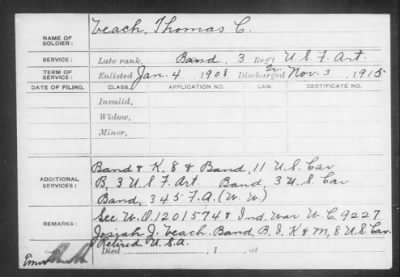 Veach, Thomas C.
NAME OF SOLDIER:
SERVICE: Late rank, Band, 3 Reg't U.S.F. Art.
TERM OF SERVICE: Enlisted Jan. 4, 1908 Discharged Nov. 3, 1915
DATE OF FILING. CLASS. APPLICATION NO. LAW. CERTIFICATE NO.
Invalid,
Widow,
Minor,
ADDITIONAL SERVICES: Band & K, 8 & Band, 11 U.S. Cav
B, 3 U.S.F. Art. Band, 3 U.S. Cav
Band, 345 F.A. (W.W)
REMARKS: See W.O. 1201574 & Ind. War W.C. 9227
Josiah J. Veach, Band, B, I, K & M, 8 U.S. Cav.
Retired U.S.A.
Died , 1 , at